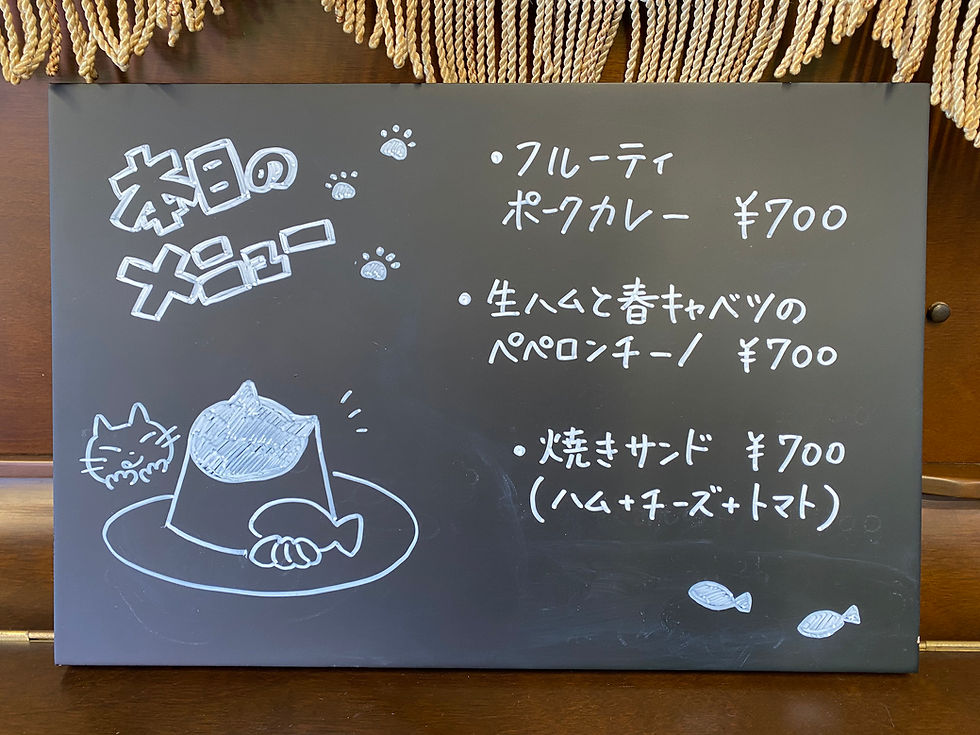 本日の
メニュー
・フルーティ
ポークカレー ¥700
・生ハムと春キャベツの
ペペロンチーノ ¥700
・焼きサンド ¥700
(ハム+チーズ+トマト)